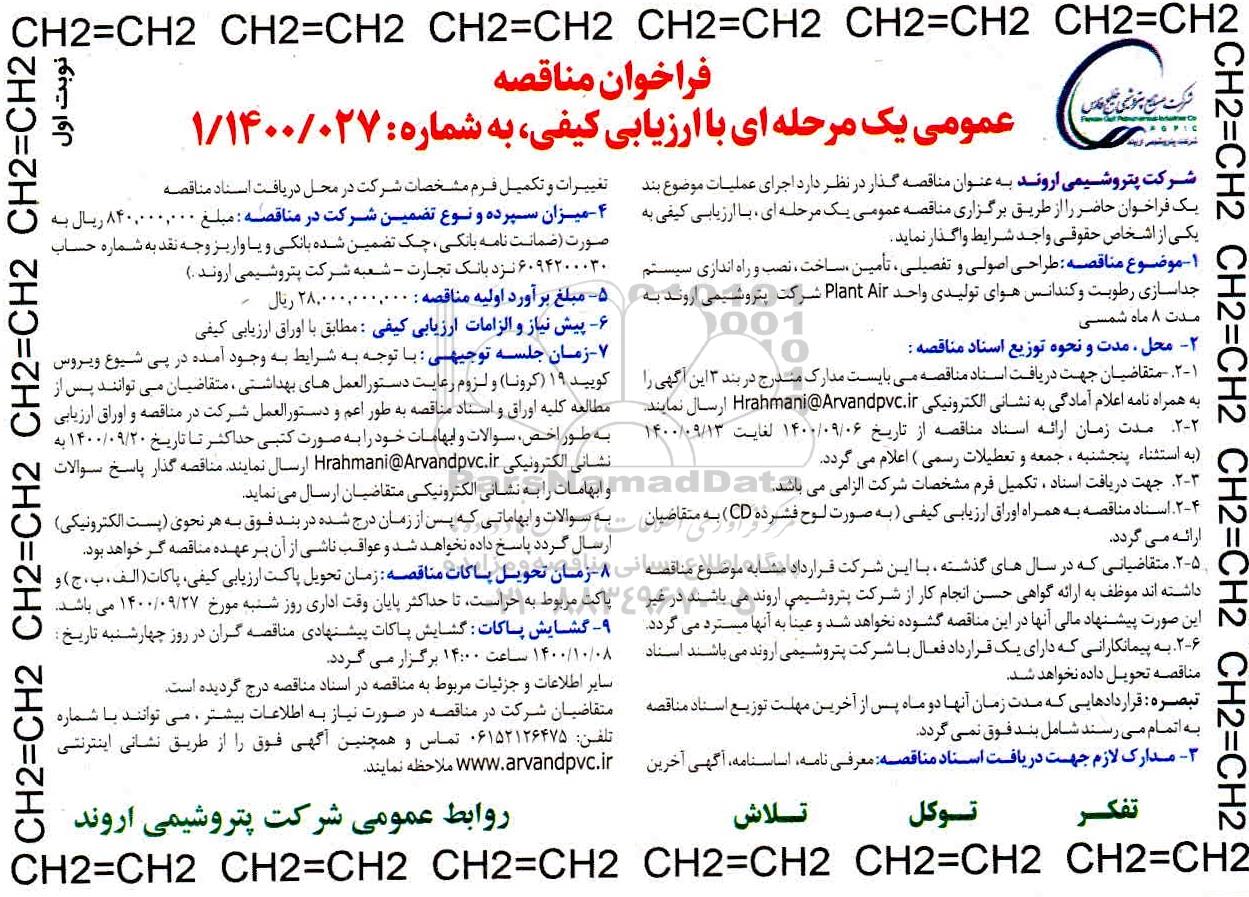 CH2=CH2 CH2=CH2 CH2=CH2 CH2=CH2 CH2=CH2 CH2=CH2
نوبت اول
شرکت صنایع پتروشیمی خلیج فارس
Persian Gulf Petrochemical Industries Co
P G P I C
شرکت پتروشیمی اروند
فراخوان مناقصه
عمومی یک مرحله ای با ارزیابی کیفی، به شماره: ۱/۱۴۰۰/۰۲۷
شرکت پتروشیمی اروند به عنوان مناقصه گذار در نظر دارد اجرای عملیات موضوع بند
یک فراخوان حاضر را از طریق برگزاری مناقصه عمومی یک مرحله ای، با ارزیابی کیفی به
یکی از اشخاص حقوقی واجد شرایط واگذار نماید.
۱-موضوع مناقصه: طراحی اصولی و تفصیلی، تأمین، ساخت، نصب و راه اندازی سیستم
جداسازی رطوبت و کندانس هوای تولیدی واحد Plant Air شرکت پتروشیمی اروند به
مدت ۸ ماه شمسی
۲- محل، مدت و نحوه توزیع اسناد مناقصه:
۲-۱. -متقاضیان جهت دریافت اسناد مناقصه می بایست مدارک مندرج در بند ۳ این آگهی را
به همراه نامه اعلام آمادگی به نشانی الکترونیکی Hrahmani@Arvandpvc.ir ارسال نمایند.
۲-۲. مدت زمان ارائه اسناد مناقصه از تاریخ ۱۴۰۰/۰۹/۰۶ لغایت ۱۴۰۰/۰۹/۱۳
(به استثناء پنجشنبه، جمعه و تعطیلات رسمی) اعلام می گردد.
۲-۳. جهت دریافت اسناد، تکمیل فرم مشخصات شرکت الزامی می باشد.
۲-۴. اسناد مناقصه به همراه اوراق ارزیابی کیفی (به صورت لوح فشرده CD) به متقاضیان
ارائه می گردد.
۲-۵. متقاضیانی که در سال های گذشته، با این شرکت قرارداد مشابه موضوع مناقصه
داشته اند موظف به ارائه گواهی حسن انجام کار از شرکت پتروشیمی اروند می باشند در غیر
این صورت پیشنهاد مالی آنها در این مناقصه گشوده نخواهد شد و عیناً به آنها مسترد می گردد.
۲-۶. به پیمانکارانی که دارای یک قرارداد فعال با شرکت پتروشیمی اروند می باشند اسناد
مناقصه تحویل داده نخواهد شد.
تبصره: قراردادهایی که مدت زمان آنها دو ماه پس از آخرین مهلت توزیع اسناد مناقصه
به اتمام می رسند شامل بند فوق نمی گردد.
۳- مدارک لازم جهت دریافت اسناد مناقصه: معرفی نامه، اساسنامه، آگهی آخرین
تغییرات و تکمیل فرم مشخصات شرکت در محل دریافت اسناد مناقصه
۴-میزان سپرده و نوع تضمین شرکت در مناقصه: مبلغ ۸۴۰,۰۰۰,۰۰۰ ریال به
صورت (ضمانت نامه بانکی، چک تضمین شده بانکی و یا واریز وجه نقد به شماره حساب
۶۰۹۴۲۰۰۰۳۰ نزد بانک تجارت - شعبه شرکت پتروشیمی اروند.)
۵- مبلغ برآورد اولیه مناقصه: ۲۸,۰۰۰,۰۰۰,۰۰۰ ریال
۶- پیش نیاز و الزامات ارزیابی کیفی: مطابق با اوراق ارزیابی کیفی
۷-زمان جلسه توجیهی: با توجه به شرایط به وجود آمده در پی شیوع ویروس
کووید ۱۹ (کرونا) و لزوم رعایت دستورالعمل های بهداشتی، متقاضیان می توانند پس از
مطالعه کلیه اوراق و اسناد مناقصه به طور اعم و دستورالعمل شرکت در مناقصه و اوراق ارزیابی
به طور اخص، سوالات و ابهامات خود را به صورت کتبی حداکثر تا تاریخ ۱۴۰۰/۰۹/۲۰ به
نشانی الکترونیکی Hrahmani@Arvandpvc.ir ارسال نمایند. مناقصه گذار پاسخ سوالات
و ابهامات را به نشانی الکترونیکی متقاضیان ارسال می نماید.
به سوالات و ابهاماتی که پس از زمان درج شده در بند فوق به هر نحوی (پست الکترونیکی)
ارسال گردد پاسخ داده نخواهد شد و عواقب ناشی از آن بر عهده مناقصه گر خواهد بود.
۸-زمان تحویل پاکات مناقصه: زمان تحویل پاکت ارزیابی کیفی، پاکات (الف، ب، ج) و
پاکت مربوط به حراست، تا حداکثر پایان وقت اداری روز شنبه مورخ ۱۴۰۰/۰۹/۲۷ می باشد.
۹- گشایش پاکات: گشایش پاکات پیشنهادی مناقصه گران در روز چهارشنبه تاریخ:
۱۴۰۰/۱۰/۰۸ ساعت ۱۴:۰۰ برگزار می گردد.
سایر اطلاعات و جزئیات مربوط به مناقصه در اسناد مناقصه درج گردیده است.
متقاضیان شرکت در مناقصه در صورت نیاز به اطلاعات بیشتر، می توانند با شماره
تلفن: ۰۶۱۵۲۱۲۶۴۷۵ تماس و همچنین آگهی فوق را از طریق نشانی اینترنتی
www.arvandpvc.ir ملاحظه نمایند.
ParsNamadData
پایگاه اطلاع رسانی مناقصه و مزایده
۰۲۱-۸۸۳۴۹۶۷۰-۵
تفکر توکل تلاش
روابط عمومی شرکت پتروشیمی اروند
CH2=CH2 CH2=CH2 CH2=CH2 CH2=CH2
CH2=CH2 CH2=CH2 CH2=CH2 CH2=CH2
CH2=CH2 CH2=CH2 CH2=CH2 CH2=CH2 CH2=CH2 CH2=CH2